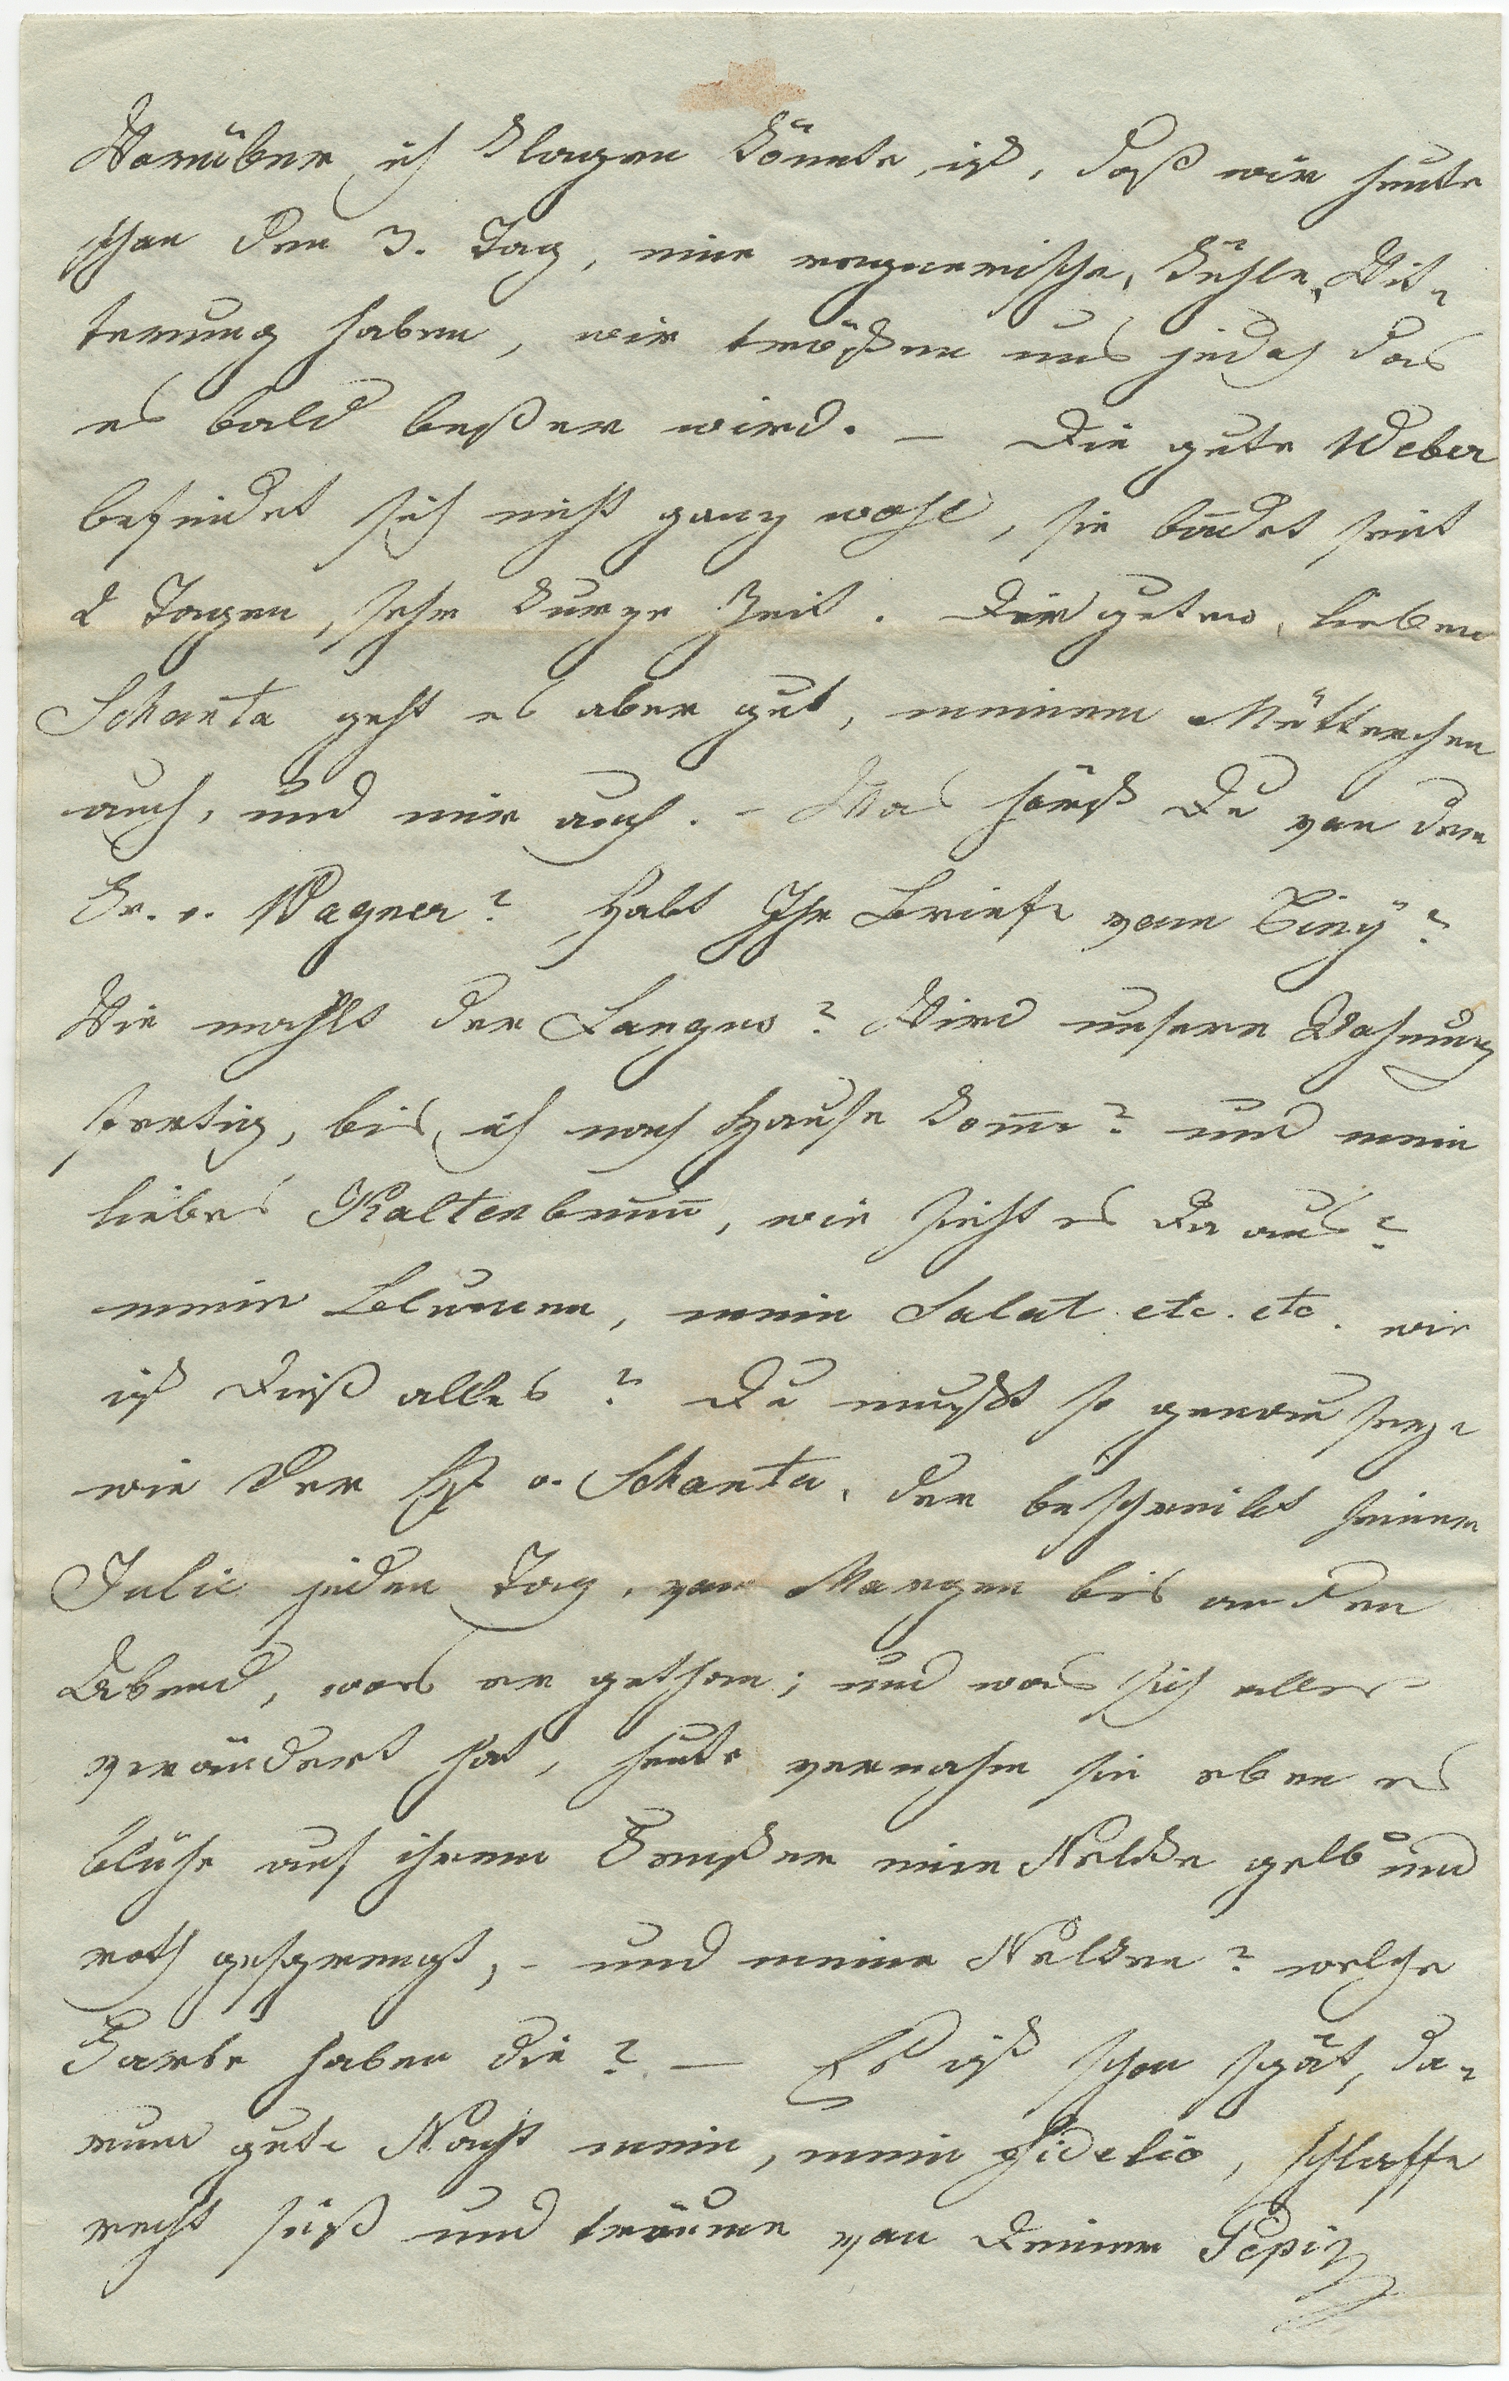 Worüber ich klagen könnte ist, daß wir heute
schon den 3. Tag, eine regnerische, kühle, Wit-
terung haben, wir trösten uns jedoch das
es bald beßer wird. – Die gute Weber
befindet sich nicht ganz wohl, sie badet seit
2 Tagen, sehr kurze Zeit. Der guten, lieben
Schanta geht es aber gut, meinem Mütterchen
auch, und mir auch. – Was hörst Du von dem
Hr. v. Wagner? Habt Ihr Briefe vom
Wie machts der Langer? Wird unsere Wohnung
fertig, bis ich nach Hause kom̅e? und mein
liebes Kaltenbrun̅, wie sieht es da aus?
meine Blumen, mein Salat etc. etc. wie
ist dieß alles? Du mußt so genau sein
wie der H v. Schanta, der beschreibt seiner
Julie jeden Tag, von Morgen bis an den
Abend, was er gethan; und was sich alles
verändert hat, heute vernahm sie eben es
blühe auf ihrem Fenster eine Nelke gelb und
roth gesprengt, – und meine Nelken? welche
Farbe haben die? – Es ist schon spät, da-
rum gute Nacht mein, mein Fidelio, schlaffe
recht süß und träume von Deiner Pepi